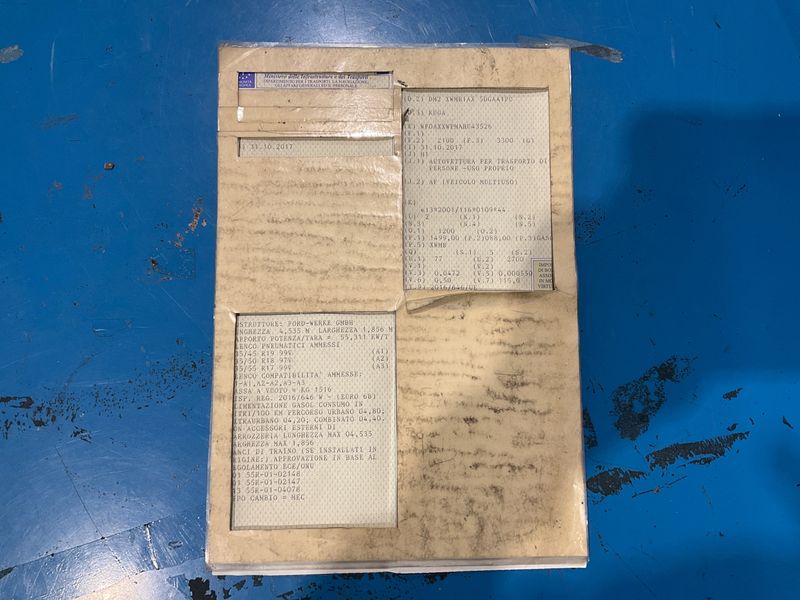 Ministero delle Infrastrutture e dei Trasporti
DIPARTIMENTO PER I TRASPORTI, LA NAVIGAZIONE,
GLI AFFARI GENERALI ED IL PERSONALE
31.10.2017
(D.2) DM2 XWMB1AX 5DGAA1PC
KUGA
(E) WF0AXXWPMAHU43526
(F.1)
(F.2) 2100 (F.3) 3300 (G)
(I) 31.10.2017
(J) M1
(J.1) AUTOVETTURA PER TRASPORTO DI
PERSONE -USO PROPRIO
(J.2) AF (VEICOLO MULTIUSO)
(K)
e13*2001/116*0109*44
(L) 2 (N.1) (N.2)
(N.3) (N.4) (N.5)
(O.1) 1200 (O.2)
(P.1) 1499,00 (P.2)088,00 (P.3)GASO
(P.5) XWMB
(Q) (S.1) 5 (S.2)
(U.1) 77 (U.2) 2700
(V.2)
(V.3) 0,0472 (V.5) 0,000550
0,50 (V.7) 115,0
2016/646/UE
IMPO
DI BO
ASSO
IN MO
VIRTU
OSTRUTTORE: FORD-WERKE GMBH
UNGHEZZA 4,535 M LARGHEZZA 1,856 M
APPORTO POTENZA/TARA = 55,311 KW/T
LENCO PNEUMATICI AMMESSI
35/45 R19 99V (A1)
35/50 R18 97V (A2)
35/55 R17 99V (A3)
LENCO COMPATIBILITA' AMMESSE:
-A1,A2-A2,A3-A3
ASSA A VUOTO = KG 1516
ISP. REG. 2016/646 W - (EURO 6B)
LIMENTAZIONE GASOL CONSUMO IN
ITRI/100 KM PERCORSO URBANO 04,80;
XTRAURBANO 04,20; COMBINATO 04,40.
ON ACCESSORI ESTERNI DI
ARROZZERIA LUNGHEZZA MAX 04,535
ARGHEZZA MAX 1,856
ANCI DI TRAINO (SE INSTALLATI IN
RIGINE:) APPROVAZIONE IN BASE AL
EGOLAMENTO ECE/ONU
) 55R-01-02148
) 55R-01-02147
) 55R-01-04078
IPO CAMBIO = MEC